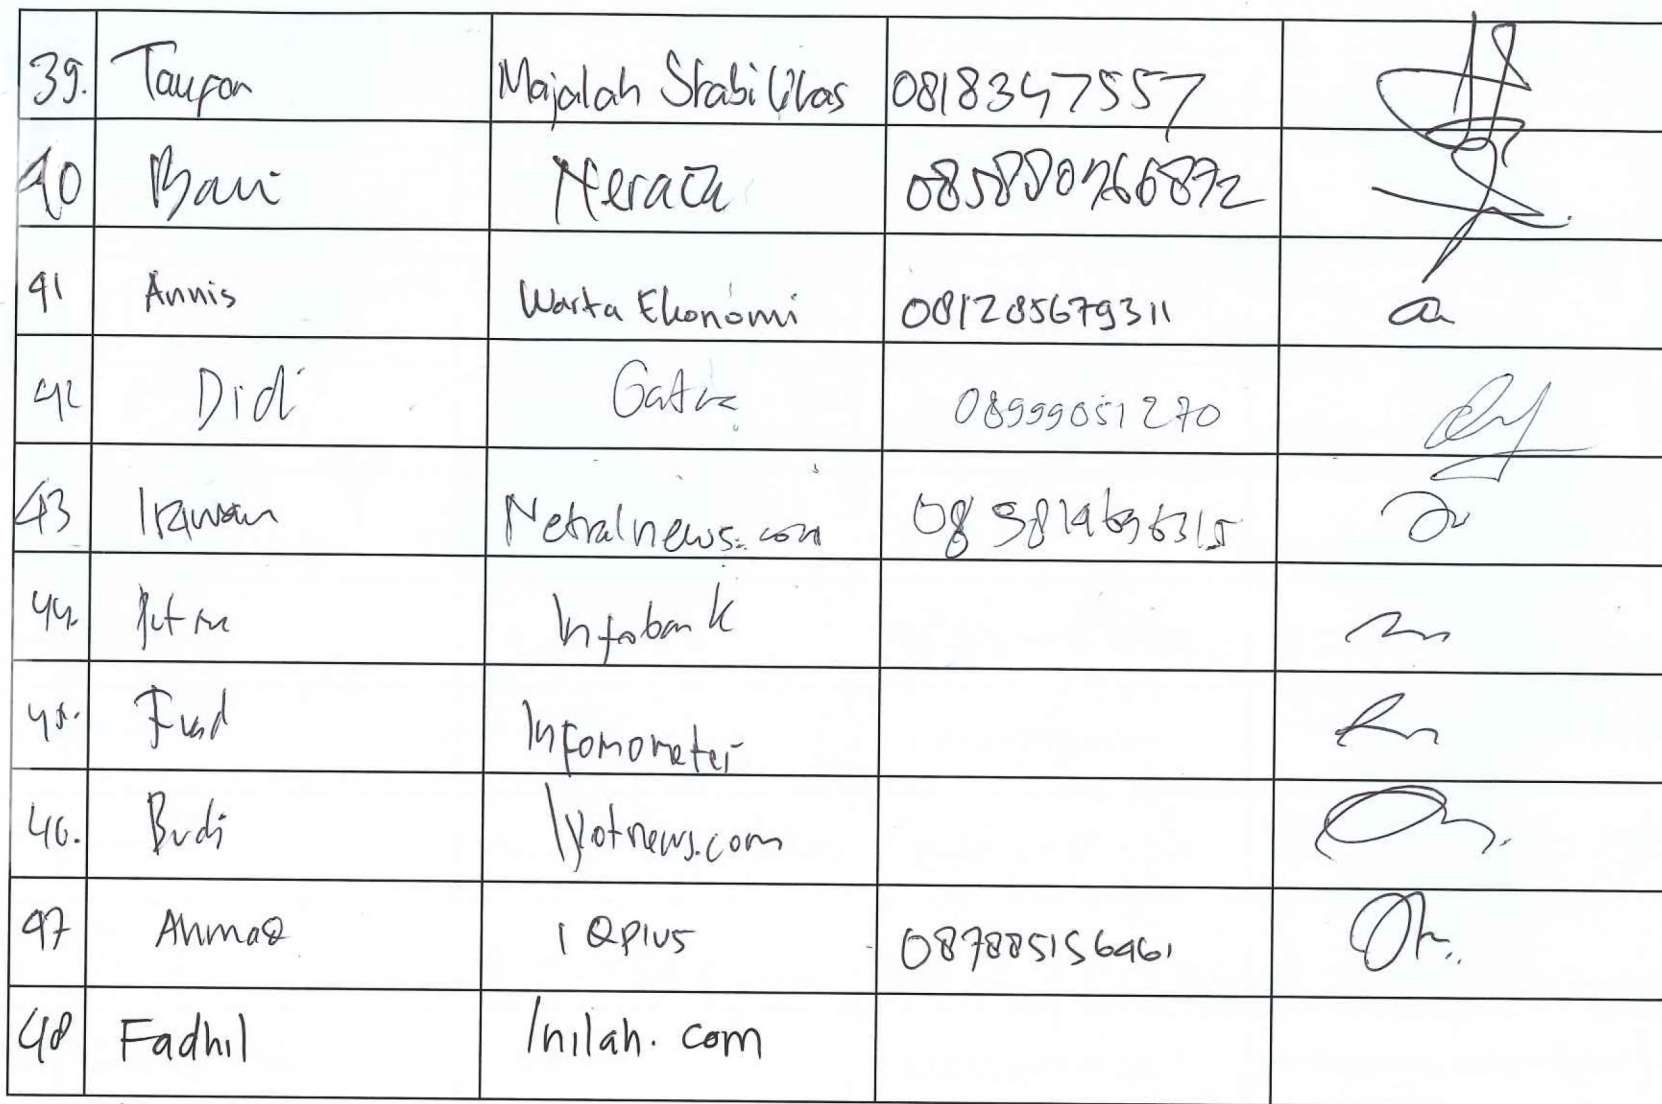 39. Taufan Majalah Stabilitas 0818347557
40 Bari Neraca
41 Annis Warta Ekonomi 081285679311
42 Didi Gatra 08999051270
43 Irawan Netralnews.com
44. Infobank
45. Fuad Infomoneter
46. Budi
47 Ahmad iQplus 087885156461
48 Fadhil Inilah.com